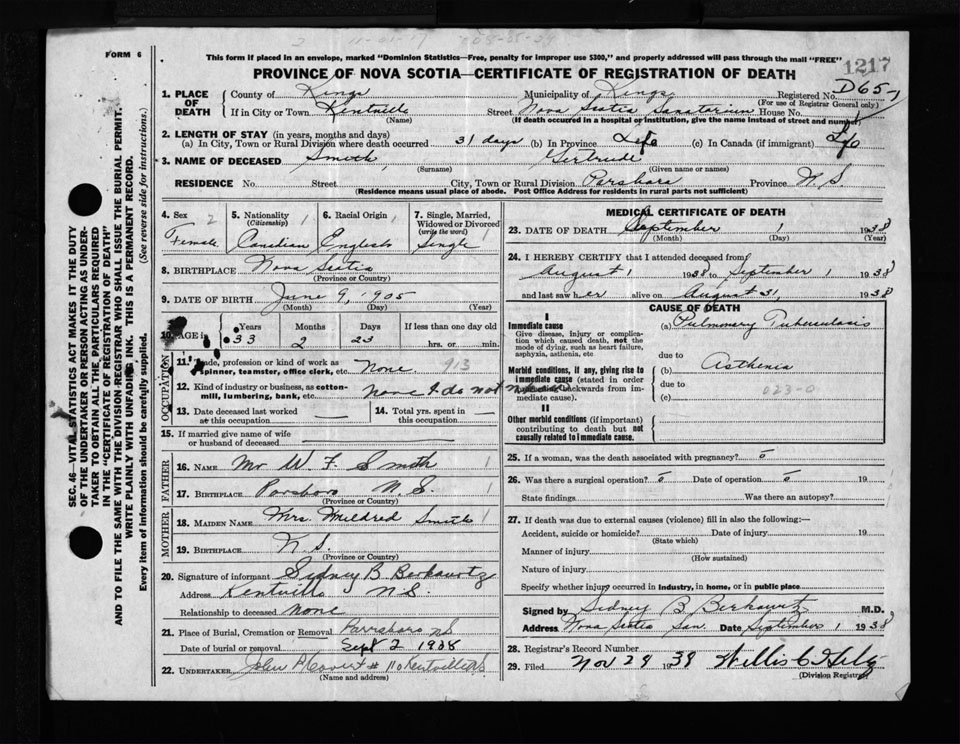 FORM 6
This form if placed in an envelope, marked "Dominion Statistics—Free, penalty for improper use $300," and properly addressed will pass through the mail "FREE"
1217
PROVINCE OF NOVA SCOTIA—CERTIFICATE OF REGISTRATION OF DEATH
SEC. 46—VITAL STATISTICS ACT MAKES IT THE DUTY
OF THE UNDERTAKER OR PERSON ACTING AS UNDER-
TAKER TO OBTAIN ALL THE PARTICULARS REQUIRED
IN THE "CERTIFICATE OF REGISTRATION OF DEATH"
AND TO FILE THE SAME WITH THE DIVISION REGISTRAR WHO SHALL ISSUE THE BURIAL PERMIT.
WRITE PLAINLY WITH UNFADING INK. THIS IS A PERMANENT RECORD.
Every item of information should be carefully supplied. (See reverse side for instructions.)
1. PLACE OF DEATH
County of Kings Municipality of Kings Registered No. D657
(For use of Registrar General only)
If in City or Town Kentville Street Nova Scotia Sanatorium House No.
(Name) (If death occurred in a hospital or institution, give the name instead of street and number)
2. LENGTH OF STAY (in years, months and days)
(a) In City, Town or Rural Division where death occurred 31 days (b) In Province Life (c) In Canada (if immigrant) Life
3. NAME OF DECEASED Smith, Gertrude
(Surname) (Given name or names)
RESIDENCE No. Street City, Town or Rural Division Parsboro Province N.S.
(Residence means usual place of abode. Post Office Address for residents in rural parts not sufficient)
4. Sex 2 Female
5. Nationality (Citizenship) 1 Canadian
6. Racial Origin 1 English
7. Single, Married, Widowed or Divorced (write the word) 1 Single
8. BIRTHPLACE Nova Scotia
(Province or Country)
9. DATE OF BIRTH June 9, 1905
(Month) (Day) (Year)
10. AGE in Years Months Days If less than one day
33 2 23 hrs. or min.
OCCUPATION
11. Trade, profession or kind of work as spinner, teamster, office clerk, etc. None 913
12. Kind of industry or business, as cotton-mill, lumbering, bank, etc. None I do not
13. Date deceased last worked at this occupation
14. Total yrs. spent in this occupation
15. If married give name of wife or husband of deceased
FATHER
16. NAME Mr W. F. Smith 1
17. Birthplace Parsboro N.S. 1
(Province or Country)
MOTHER
18. MAIDEN NAME Mrs. Mildred Smith 1
19. BIRTHPLACE N.S.
(Province or Country)
20. Signature of informant Sidney B. Berkowitz
Address Kentville N.S.
Relationship to deceased None
21. Place of Burial, Cremation or Removal Parrsboro NS
Date of burial or removal Sept 2 1938
22. UNDERTAKER John A # 110 Kentville NS
(Name and address)
MEDICAL CERTIFICATE OF DEATH
23. DATE OF DEATH September 1 1938
(Month) (Day) (Year)
24. I HEREBY CERTIFY that I attended deceased from
August 1 1938 to September 1 1938
and last saw her alive on August 31, 1938
CAUSE OF DEATH
I
Immediate cause
Give disease, injury or complication which caused death, not the mode of dying, such as heart failure, asphyxia, asthenia, etc
(a) Pulmonary Tuberculosis
due to
Morbid conditions, if any, giving rise to immediate cause (stated in order backwards from immediate cause).
(b) Asthenia
due to
(c) 023-0
II
Other morbid conditions (if important) contributing to death but not causally related to immediate cause.
25. If a woman, was the death associated with pregnancy? 0
26. Was there a surgical operation? 0 Date of operation 0 19
State findings Was there an autopsy?
27. If death was due to external causes (violence) fill in also the following:—
Accident, suicide or homicide? Date of injury 19
(State which)
Manner of injury
(How sustained)
Nature of injury
Specify whether injury occurred in industry, in home, or in public place
Signed by Sidney B. Berkowitz M.D.
Address Nova Scotia San. Date September 1 1938
28. Registrar's Record Number
29. Filed Nov 29 1938 Willis C
(Division Registrar)